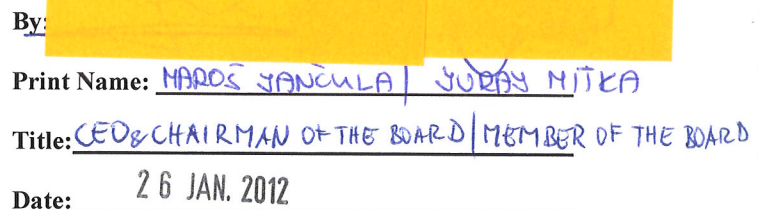 By:
Print Name: MAROŠ JANČULA | JURAJ MITKA
Title: CEO & CHAIRMAN OF THE BOARD | MEMBER OF THE BOARD
Date: 26 JAN. 2012